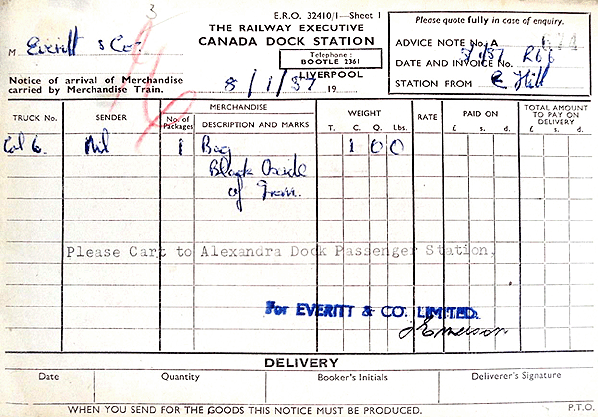 3
E.R.O. 32410/1—Sheet 1
THE RAILWAY EXECUTIVE
CANADA DOCK STATION
Telephone:
BOOTLE 2361
LIVERPOOL
M Everitt & Co.
8/1/57 19
Notice of arrival of Merchandise
carried by Merchandise Train.
Please quote fully in case of enquiry.
ADVICE NOTE No. A
DATE AND INVOICE No. R66
STATION FROM E Hill
TRUCK No. SENDER No. of Packages MERCHANDISE DESCRIPTION AND MARKS WEIGHT T. C. Q. Lbs. RATE PAID ON £ s. d. TOTAL AMOUNT TO PAY ON DELIVERY £ s. d.
Col 6. Nil 1 Bag 1 0 0
Black Oxide
of Iron.
Please Cart to Alexandra Dock Passenger Station,
For EVERITT & CO. LIMITED.
DELIVERY
Date Quantity Booker's Initials Deliverer's Signature
WHEN YOU SEND FOR THE GOODS THIS NOTICE MUST BE PRODUCED. P.T.O.